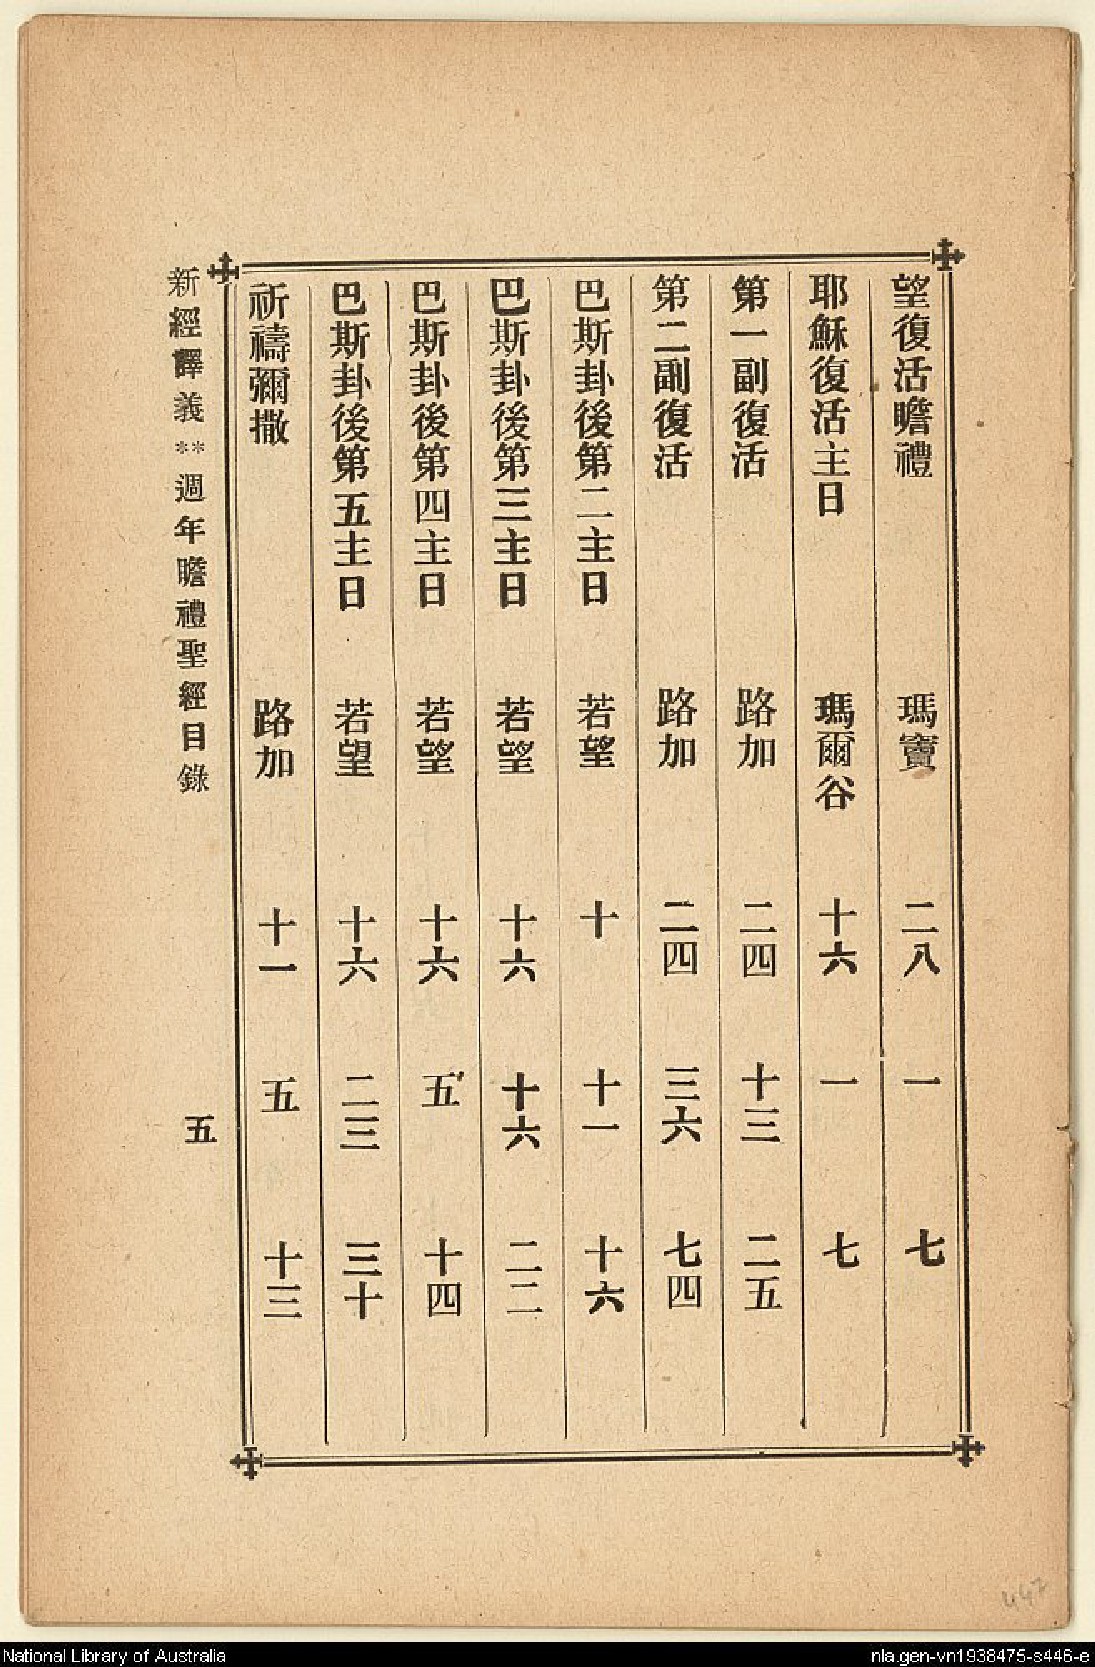 望復活瞻禮 瑪竇 二八 一 七
耶穌復活主日 瑪爾谷 十六 一 七
第一副復活 路加 二四 十三 二五
第二副復活 路加 二四 三六 七四
巴斯卦後第二主日 若望 十 十一 十六
巴斯卦後第三主日 若望 十六 十六 二二
巴斯卦後第四主日 若望 十六 五 十四
巴斯卦後第五主日 若望 十六 二三 三十
祈禱彌撒 路加 十一 五 十三
新經譯義**週年瞻禮聖經目錄 五
447
National Library of Australia
nla.gen-vn1938475-s446-e